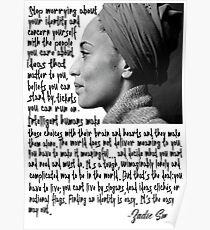 Stop worrying about
your identity and
concern yourself
with the people
you care about,
ideas that
matter to you,
beliefs you can
stand by, tickets
you can run on.
Intelligent humans make
those choices with their brain and hearts and they make
them alone. The world does not deliver meaning to you.
You have to make it meaningful... and decide what you want
and need and must do. It's a tough, unimaginably lonely and
complicated way to be in the world. But that's the deal: you
have to live; you can't live by slogans, dead ideas, clichés, or
national flags. Finding an identity is easy. It's the easy
way out.
-Zadie Sm